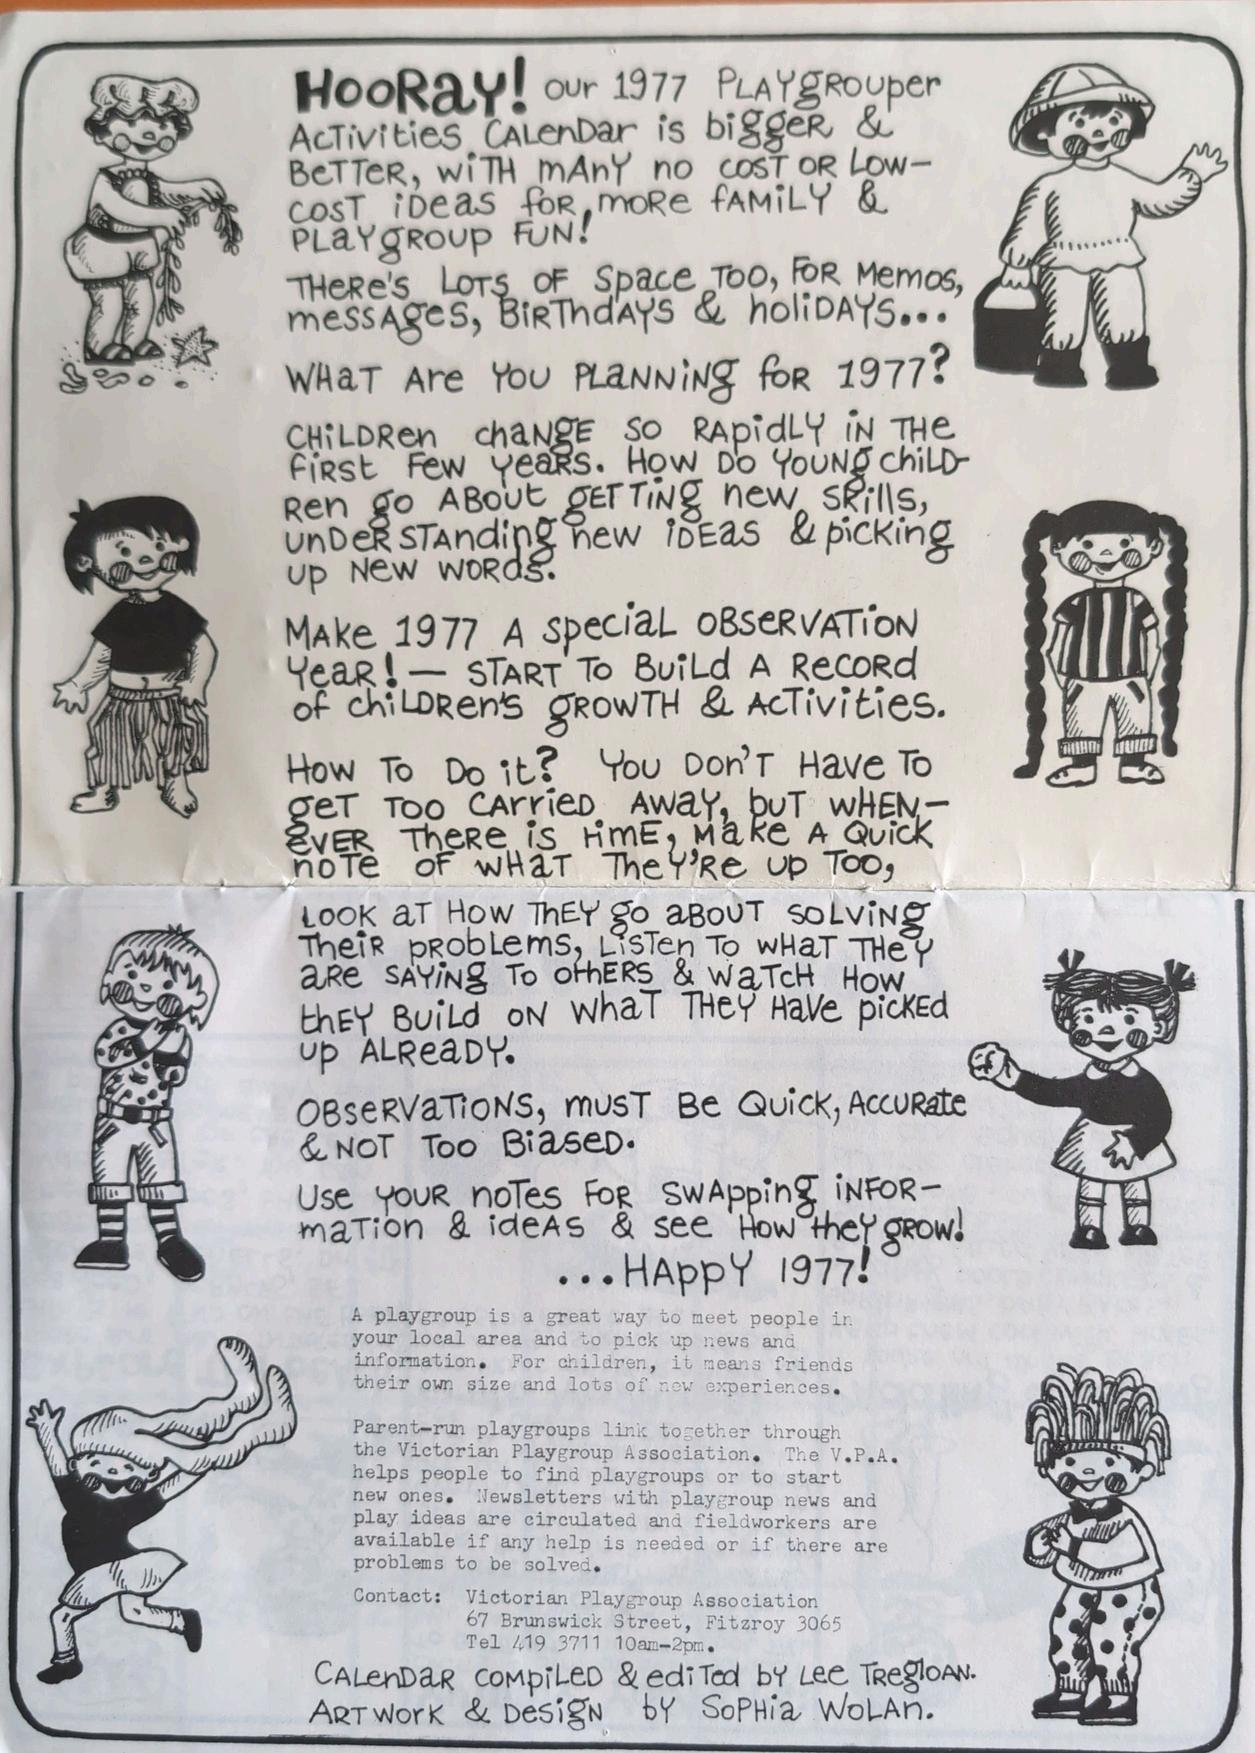 HOORAY! our 1977 PLAYgROUper
ACTIVities CALenDar is bigger &
BETTER, wiTH mAnY no COST OR LOW-
COST iDeas for, more fAMiLY &
PLaygroup FUN!
THere's LOTS OF Space TOO, FOR Memos,
messAges, BiRThdAYS & holiDAYS...
WHaT Are YOU PLaNNiNg for 1977?
CHiLDRen chaNgE SO RApidLY iN THe
first Few years. How Do YOUNg chiLD-
Ren go ABOUt geTTiNg new skills,
unDerSTAnding new iDEas & picking
up New words.
MAke 1977 A special OBSeRVATiON
Year! — START TO BuiLd A Record
of chiLDRen's gROWTH & AcTivities.
How To Do it? You Don'T Have To
geT Too CArried AWay, but wHEN-
EVER THere is time, Make A Quick
noTe of wHaT They're up Too,
Look aT How ThEY go aBOUT soLViNg
Their problems, LisTen To wHaT THeY
are SAYiNg To otHERS & WaTCH HOW
thEY BuiLd ON whaT THeY HaVe picKEd
up ALReaDY.
OBseRVaTiONS, musT Be Quick, AccuRate
& NOT Too Biased.
Use YOUR noTes FOR swApping iNFOR-
maTion & ideAs & see How they grow!
...HAppY 1977!
A playgroup is a great way to meet people in
your local area and to pick up news and
information. For children, it means friends
their own size and lots of new experiences.
Parent-run playgroups link together through
the Victorian Playgroup Association. The V.P.A.
helps people to find playgroups or to start
new ones. Newsletters with playgroup news and
play ideas are circulated and fieldworkers are
available if any help is needed or if there are
problems to be solved.
Contact: Victorian Playgroup Association
67 Brunswick Street, Fitzroy 3065
Tel 419 3711 10am-2pm.
CALenDar compiLeD & ediTed by Lee TregloAN.
ART work & Design by SoPHia WoLAN.